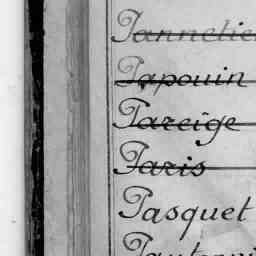 Pannelie
Papouin
Pareige
Paris
Pasquet